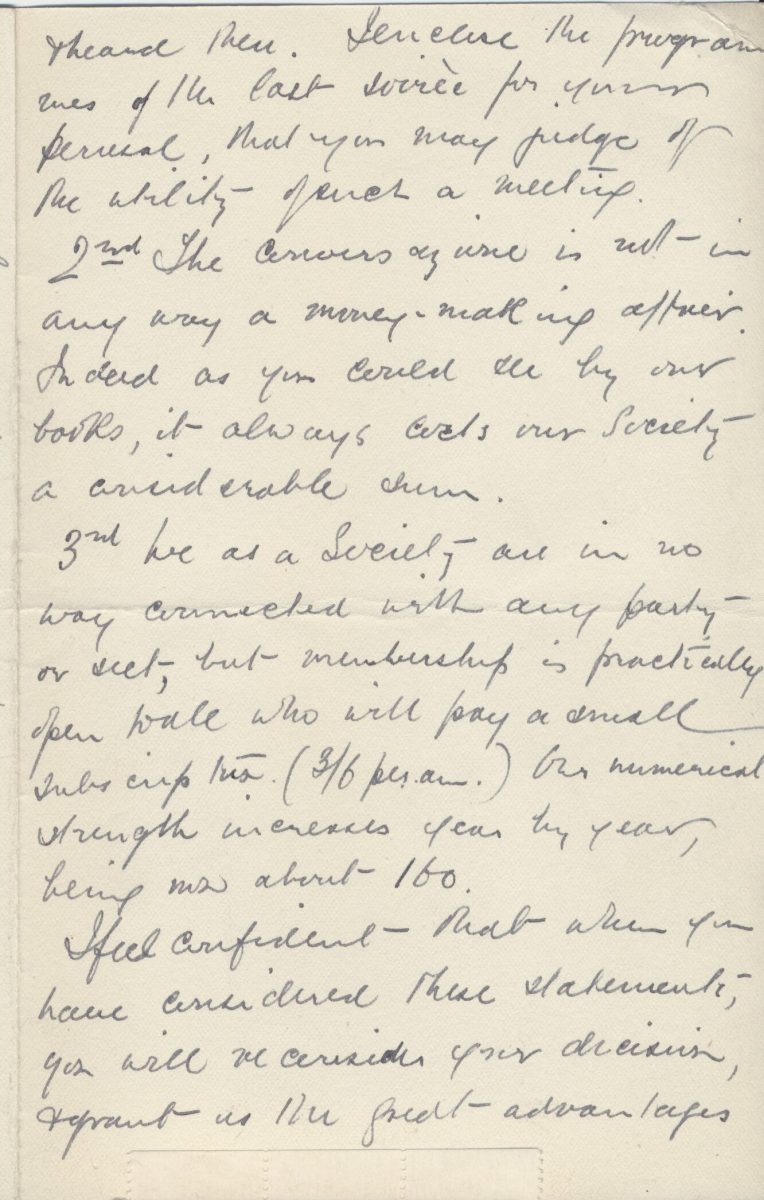 & heard them. I enclose the program
mes of the last soirèe for your
perusal, that you may judge of
the utility of such a meeting.
2nd The conversazione is not in
any way a money-making affair.
Indeed as you could see by our
books, it always costs our Society
a considerable sum.
3rd We as a Society are in no
way connected with any party
or sect, but membership is practically
open to all who will pay a small
subscription. (3/6 per. an.) Our numerical
strength increases year by year,
being now about 160.
I feel confident that when you
have considered these statements,
you will reconsider your decision,
& grant us the great advantages